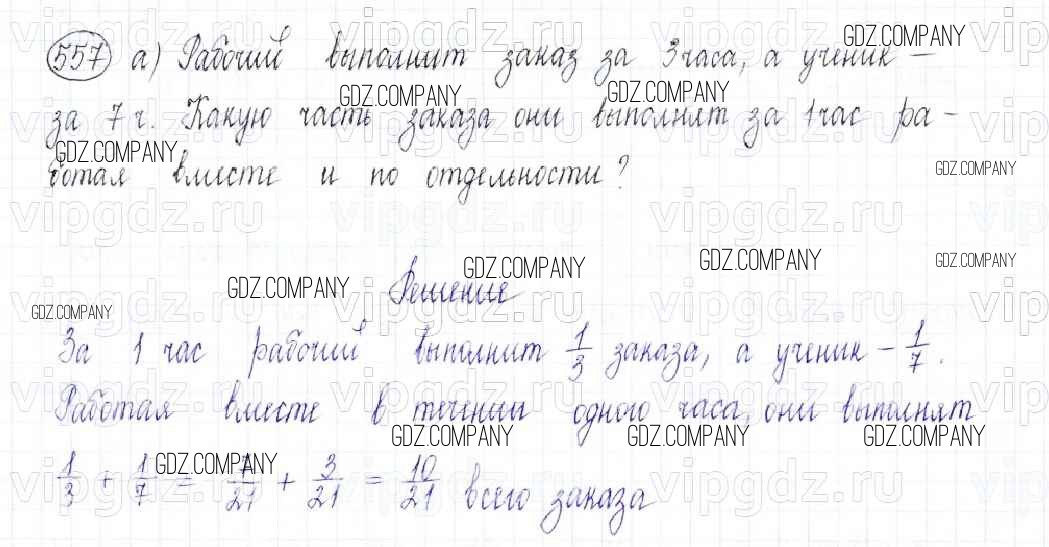 557 а) Рабочий выполнит заказ за 3 часа, а ученик —
за 7 ч. Какую часть заказа они выполнят за 1 час ра-
ботая вместе и по отдельности?
Решение
За 1 час рабочий выполнит 1/3 заказа, а ученик – 1/7.
Работая вместе в течении одного часа, они выполнят
1/3 + 1/7 = 7/21 + 3/21 = 10/21 всего заказа